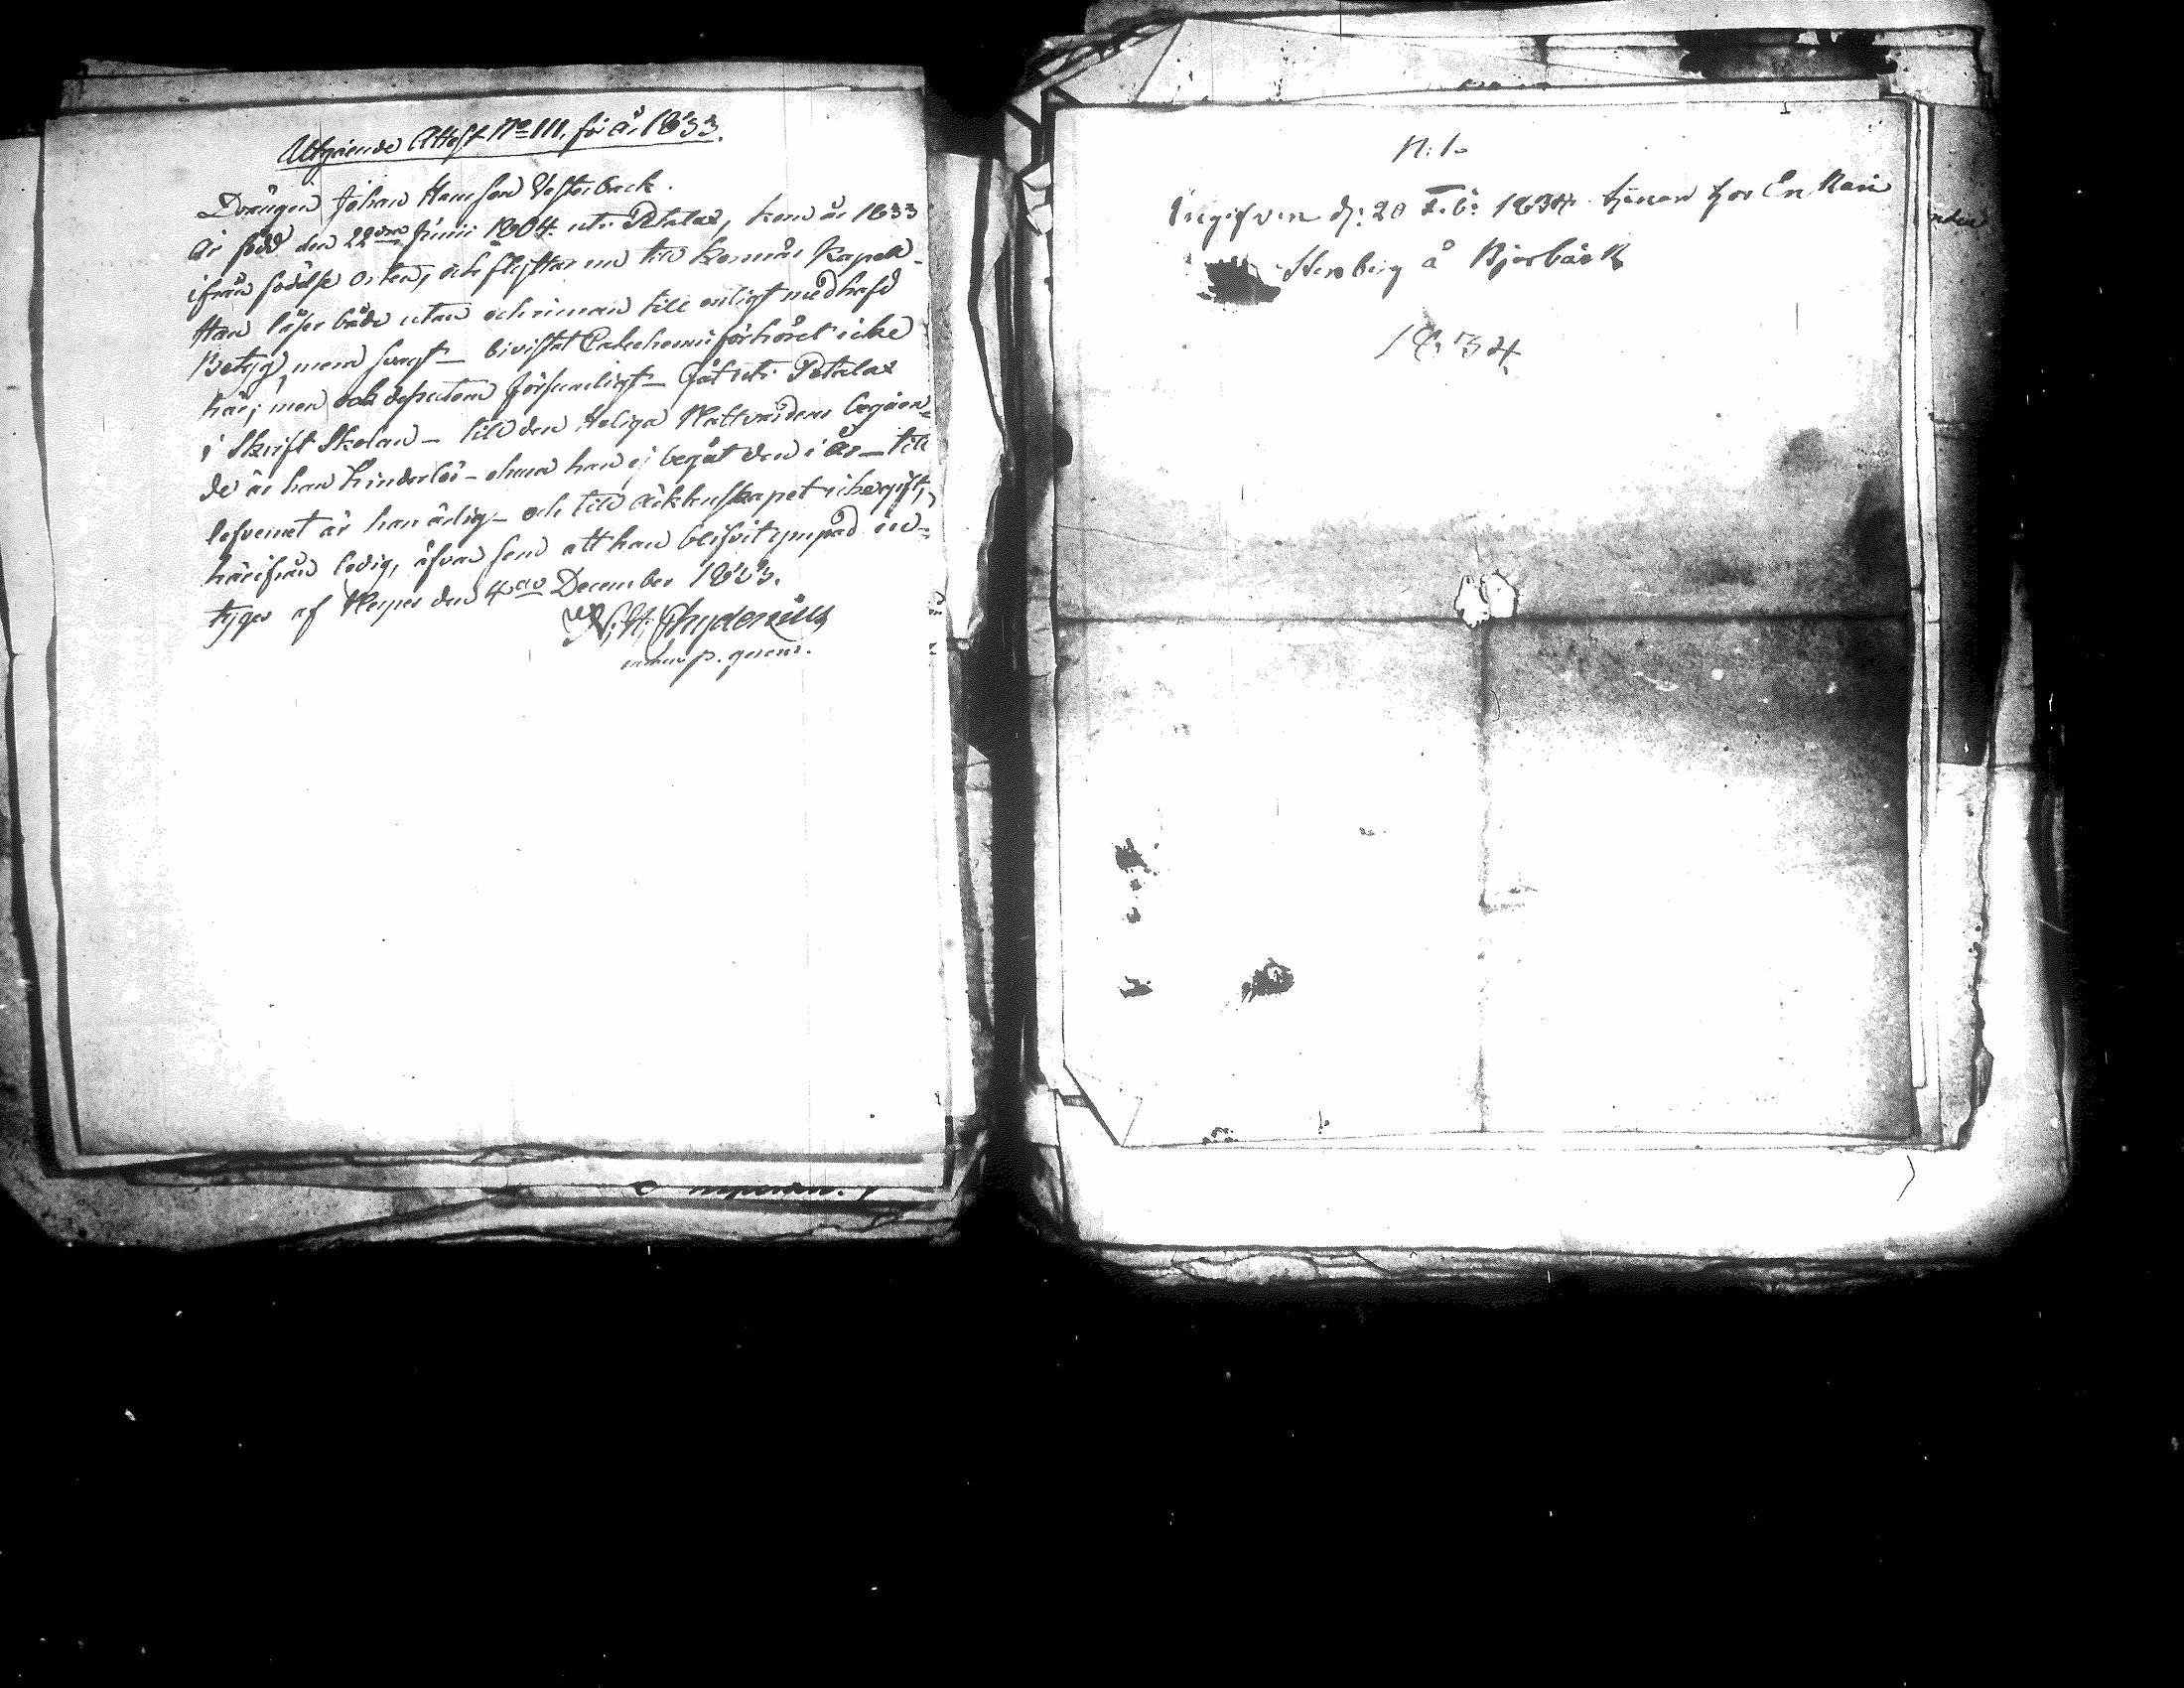 Utgående Attest No 111. för år 1833.
Drängen Johan Hansson Vesterback.
är född den 22dra Junii 1804. uti Petalax, kom år 1833
ifrån födelse orten, och flyttar nu till Korsnäs Kapell.
Han läser både utan och innan till enligt medhafd
Betyg, men svagt – bivistat Catechemiförhöret icke
här; men dessutom försumligt – Gått uti Petalax
i Skrift Skolan – till den Heliga Nattvardens begåen-
de är han hinderlös – ehuru han ej begåt den i år – till
lefvernet är han ärlig – och till äcktenskapet icke gift,
härifrån ledig, äfven som att han blifvit ympad in-
tygar af Kerpes den 4de December 1833.
Chydenius
p.
N: 1.
Ingifven d: 20 Feb: 1834. tjenar hos Enkan
Stenberg å Bjerbäck
1834